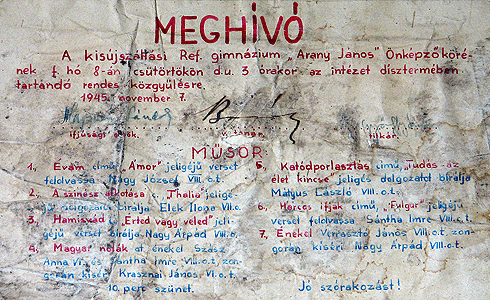 MEGHÍVÓ
A kisújszállási Ref. gimnázium „Arany János" Önképzőköré-
nek f. hó 8-án csütörtökön d.u. 3 órakor az intézet dísztermében
tartandó rendes közgyűlésre.
1945. november 7.
ifjúsági elnök. v. tanár. titkár.
MŰSOR
1., Évám című „Ámor" jeligéjű verset
felolvassa Nagy József VIII.o.t.
2., A színész című „Thália" jeligé-
bírálja Elek Ilona VII.o.
3., Hamiszád „Érted vagy veled" jeli-
géjű verset bírálja Nagy Árpád VIII.o.
4., Magyar nóták at énekel Szász
Anna VI. és Sántha Imre VIII.o.t. zon-
gorán kíséri Krasznai János VI.o.t.
10. perc szünet.
5., Katódporlasztás című „Tudás az
élet kincse" jeligés dolgozatot bírálja
Mátyus László VIII.o.t.
6., Harcos ifjak című „Fulgur" jeligéjű
verset felolvassa Sántha Imre VIII.o.t.
7., Énekel Verrasztó János VIII.o.t. zon-
gorán kíséri Nagy Árpád, VIII.o.t.
Jó szórakozást!